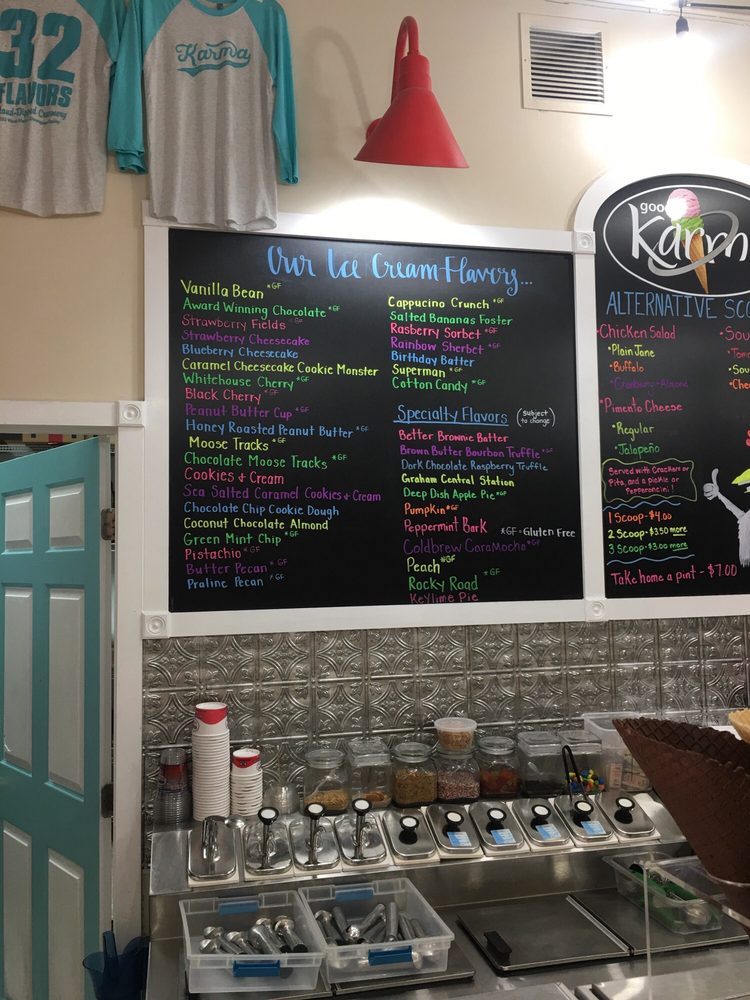 32
FLAVORS
Karma
Our Ice Cream Flavors...
Vanilla Bean *GF
Award Winning Chocolate *GF
Strawberry Fields *GF
Strawberry Cheesecake
Blueberry Cheesecake
Caramel Cheesecake Cookie Monster
Whitehouse Cherry *GF
Black Cherry *GF
Peanut Butter Cup *GF
Honey Roasted Peanut Butter *GF
Moose Tracks *GF
Chocolate Moose Tracks *GF
Cookies & Cream
Sea Salted Caramel Cookies & Cream
Chocolate Chip Cookie Dough
Coconut Chocolate Almond
Green Mint Chip *GF
Pistachio *GF
Butter Pecan *GF
Praline Pecan *GF
Cappucino Crunch *GF
Salted Bananas Foster
Rasberry Sorbet *GF
Rainbow Sherbet *GF
Birthday Batter
Superman *GF
Cotton Candy *GF
Specialty Flavors (subject to change)
Better Brownie Batter
Brown Butter Bourbon Truffle *GF
Dark Chocolate Raspberry Truffle
Graham Central Station
Deep Dish Apple Pie *GF
Pumpkin *GF
Peppermint Bark
*GF = Gluten Free
Coldbrew CaraMocha *GF
Peach *GF
Rocky Road *GF
Keylime Pie
goo
Karm
ALTERNATIVE SCO
*Chicken Salad
*Plain Jane
*Buffalo
*Cranberry-Almond
*Pimento Cheese
*Regular
*Jalapeño
Served with Crackers or
Pita, and a pickle or
Pepperoncini!
1 Scoop - $4.00
2 Scoop - $3.50 more
3 Scoop - $3.00 more
Take home a pint - $7.00
*Sou
*Tom
*Sou
*Che